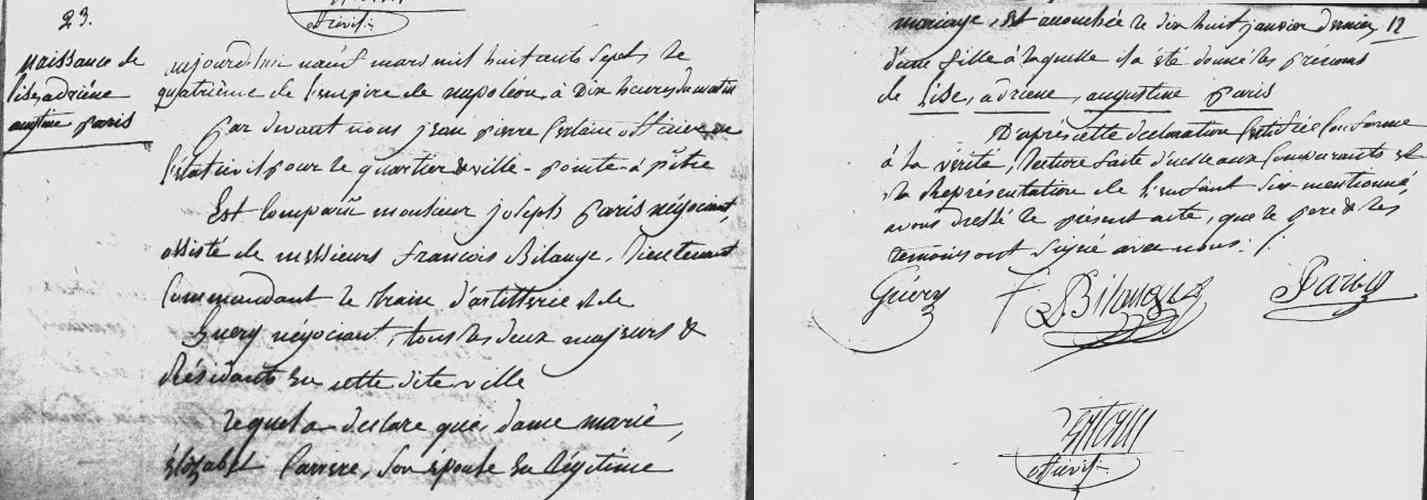 23.
Naissance de
lise, adriéne
augstine paris
aujourdhui neuf mars mil huit cents sept & le
quatrième de l'empire de napoléon, à Dix heures du matin
par devant nous jean pierre officier de
l'état civil pour le quartier & ville - pointe - à pitre
Est comparu monsieur joseph paris négociant,
assisté de messieurs françois Bilange, lieutenant
Commandant le train d'artillerie & de
Guery négociant, tous les deux majeurs &
Résidants En cette dite ville
lequel a declaré que, dame marie,
Elizabet Carrere, son épouse En légitime
mariage, Est accouchée le dix huit janvier dernier 12
d'une fille à laquelle il a été donné les prénoms
de Lise, adriene, augustine paris
D'après cette declaration Certifiée Conforme
à la vérité, lecture faite d'icelle aux Comparants &
la Représentation de l'enfant sus-mentionné,
avons dressé le présent acte, que le pere & les
temoins ont signé avec nous:
Guery F Bilange Paris